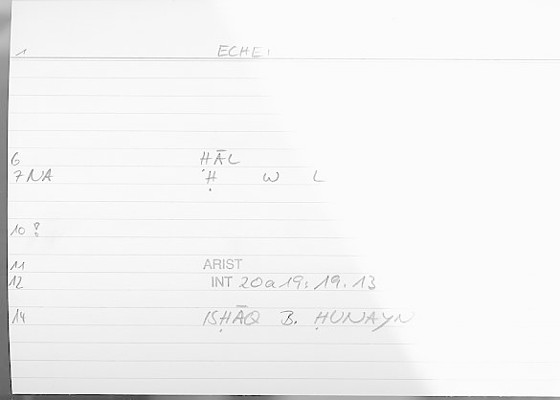 1 ECHEI
6 ḤĀL
7 NA Ḥ W L
10 ?
11 ARIST
12 INT 20a19; 19.13
14 ISḤĀQ B. ḤUNAYN